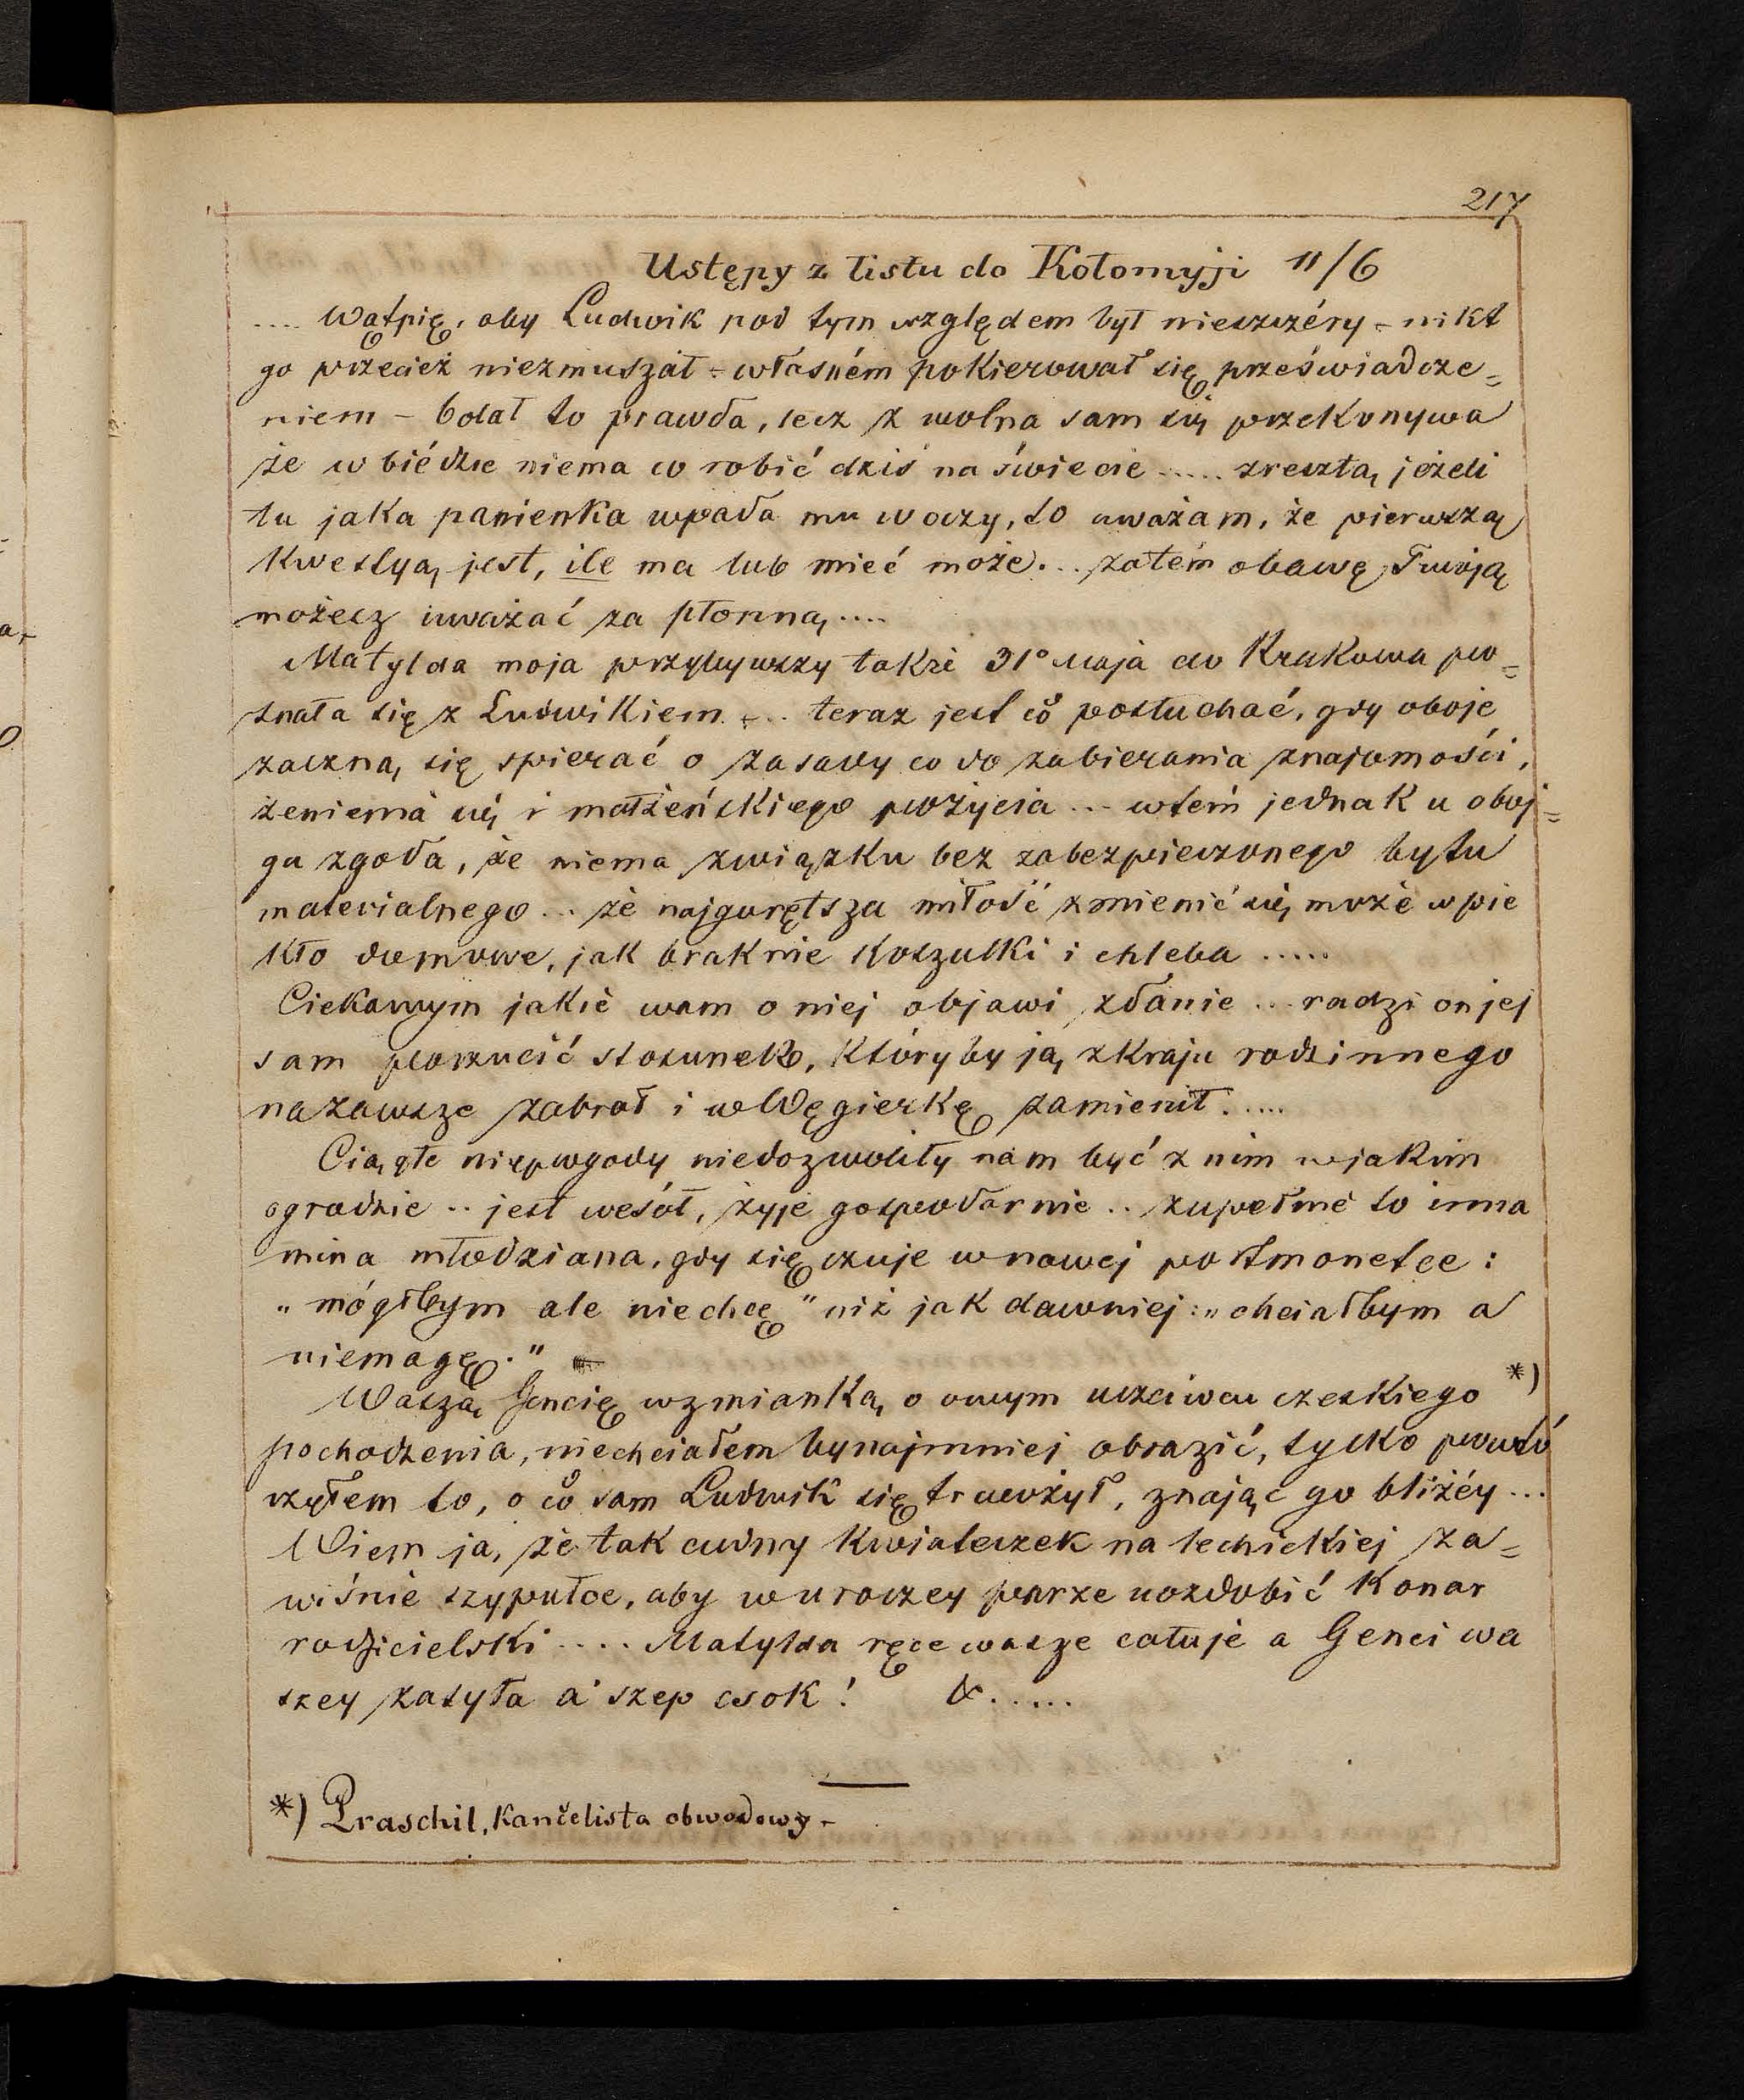 217
Ustępy z listu do Kołomyji 11/6
.... Wątpię, aby Ludwik pod tym względem był nieszczéry - nikt
go przecież niezmuszał - własném pokierował się przeświadcze=
niem - bolał to prawda, lecz z wolna sam się przekonywa
że w biédzie niema co robić dziś na świecie ..... zresztą, jeżeli
tu jaka panienka wpada mu w oczy, to uważam, że pierwszą
kwestyą jest, ile ma lub mieć może... zatém obawę Twoją
możesz uważać za płonną ....
Matylda moja przybywszy także 31° Maja do Krakowa po=
znała się z Ludwikiem ... teraz jest co posłuchać, gdy oboje
zaczną się spierać o zasady co do zabierania znajomości,
żenienia się i małżeńskiego pożycia ... wtém jednak u oboj=
ga zgoda, że niema związku bez zabezpieczonego bytu
materialnego ... że najgorętsza miłość zmienić się może w pie
kło domowe, jak braknie koszulki i chleba .....
Ciekawym jakie wam o niej objawi zdanie ... radzi on jej
sam porzucić stosunek, który by ją z kraju rodzinnego
nazawsze zabrał i w Węgierkę zamienił .....
Ciągłe niepogody niedozwoliły nam być z nim w jakim
ogrodzie .. jest wesół, żyje gospodarnie .. zupełnie to inna
mina młodziana, gdy się czuje w nowej portmonetce :
„ mógłbym ale niechcę " niż jak dawniej : „ chciałbym a
niemogę . "
Waszą Gencię wzmianką o owym uczciwcu czeskiego *)
pochodzenia, niechciałem bynajmniej obrazić, tylko powtó
rzyłem to, o co sam Ludwik się trwożył, znając go bliżéy ...
Wiem ja, że tak cudny kwiateczek na lechickiej za=
wiśnie szypułce, aby w uroczey parze uozdobić konar
rodzicielski .... Matylda ręce wasze całuje a Genci wa
szey zasyła a' szep csok ! & .....
*) Praschil, kančelista obwodowy -